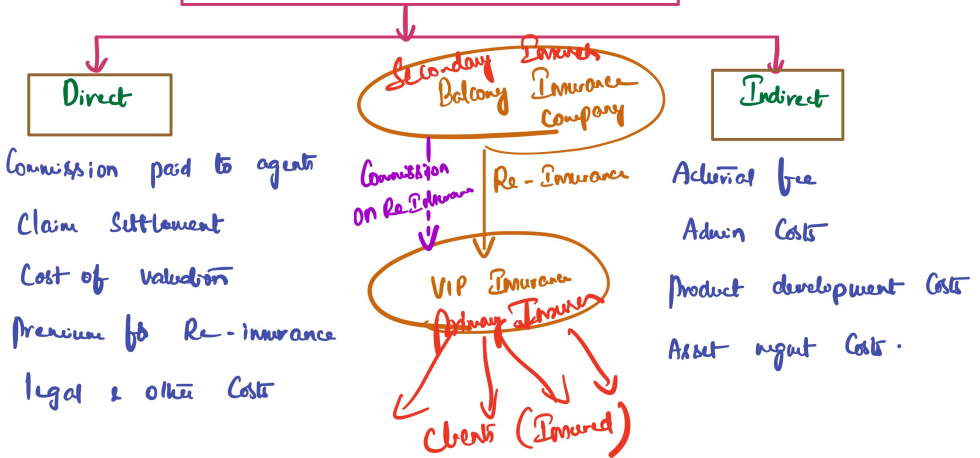 Direct
Commission paid to agents
Claim Settlement
Cost of valuation
Premium for Re-insurance
legal & other Costs
Secondary Insurer
Balcony Insurance
Company
Commission
on Re Insurance
Re-Insurance
VIP Insurance
Primary Insurer
Clients (Insured)
Indirect
Acturial fee
Admin Costs
Product development Costs
Asset mgmt Costs.